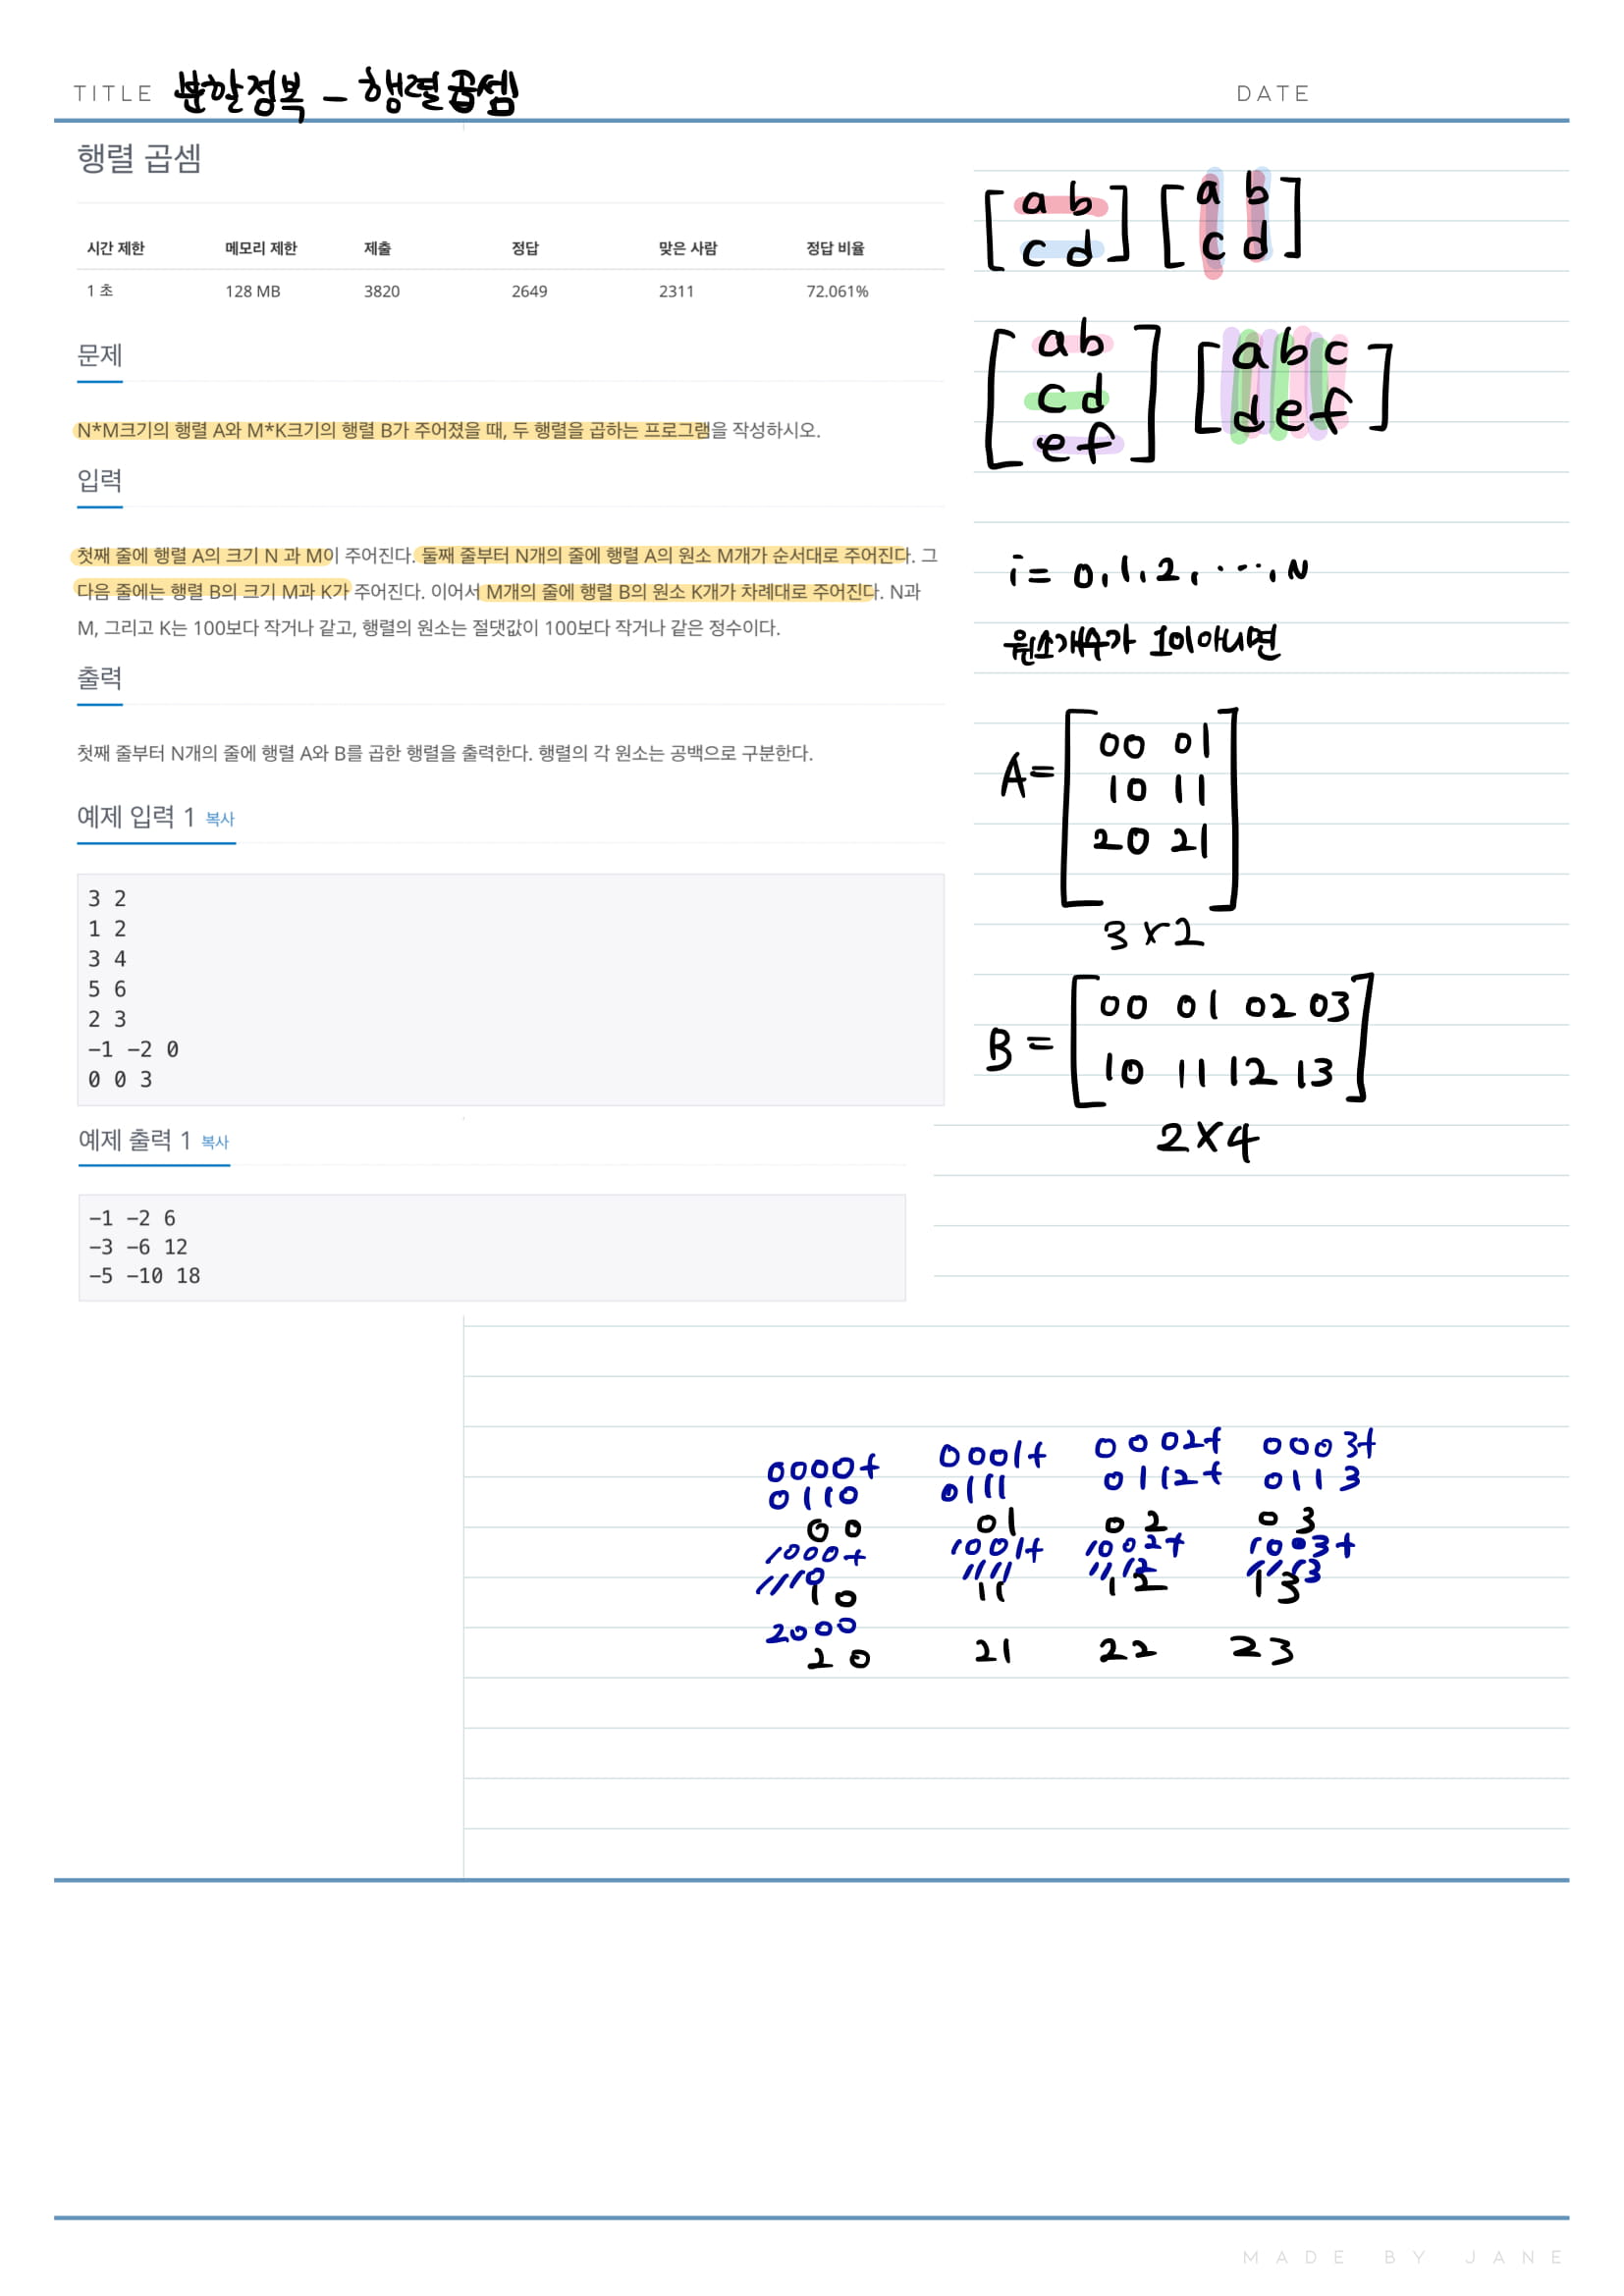 TITLE 분할정복 - 행렬 곱셈
DATE
행렬 곱셈
시간 제한 메모리 제한 제출 정답 맞은 사람 정답 비율
1 초 128 MB 3820 2649 2311 72.061%
문제
N*M크기의 행렬 A와 M*K크기의 행렬 B가 주어졌을 때, 두 행렬을 곱하는 프로그램을 작성하시오.
입력
첫째 줄에 행렬 A의 크기 N 과 M이 주어진다. 둘째 줄부터 N개의 줄에 행렬 A의 원소 M개가 순서대로 주어진다. 그
다음 줄에는 행렬 B의 크기 M과 K가 주어진다. 이어서 M개의 줄에 행렬 B의 원소 K개가 차례대로 주어진다. N과
M, 그리고 K는 100보다 작거나 같고, 행렬의 원소는 절댓값이 100보다 작거나 같은 정수이다.
출력
첫째 줄부터 N개의 줄에 행렬 A와 B를 곱한 행렬을 출력한다. 행렬의 각 원소는 공백으로 구분한다.
예제 입력 1 복사
3 2
1 2
3 4
5 6
2 3
-1 -2 0
0 0 3
예제 출력 1 복사
-1 -2 6
-3 -6 12
-5 -10 18
[a b] [a b]
[c d] [c d]
[a b] [a b c]
[c d] [d e f]
[e f]
i = 0, 1, 2, ..., N
원소개수가 1이 아니면
A = [00 01
10 11
20 21]
3 × 2
B = [00 01 02 03
10 11 12 13]
2 × 4
0000+ 0001+ 0002+ 0003+
0110 0111 0112+ 0113
00 01 02 03
1000+ 1001+ 1002+ 1003+
1110 1111 1112 1113
10 11 12 13
2000
20 21 22 23
MADE BY JANE